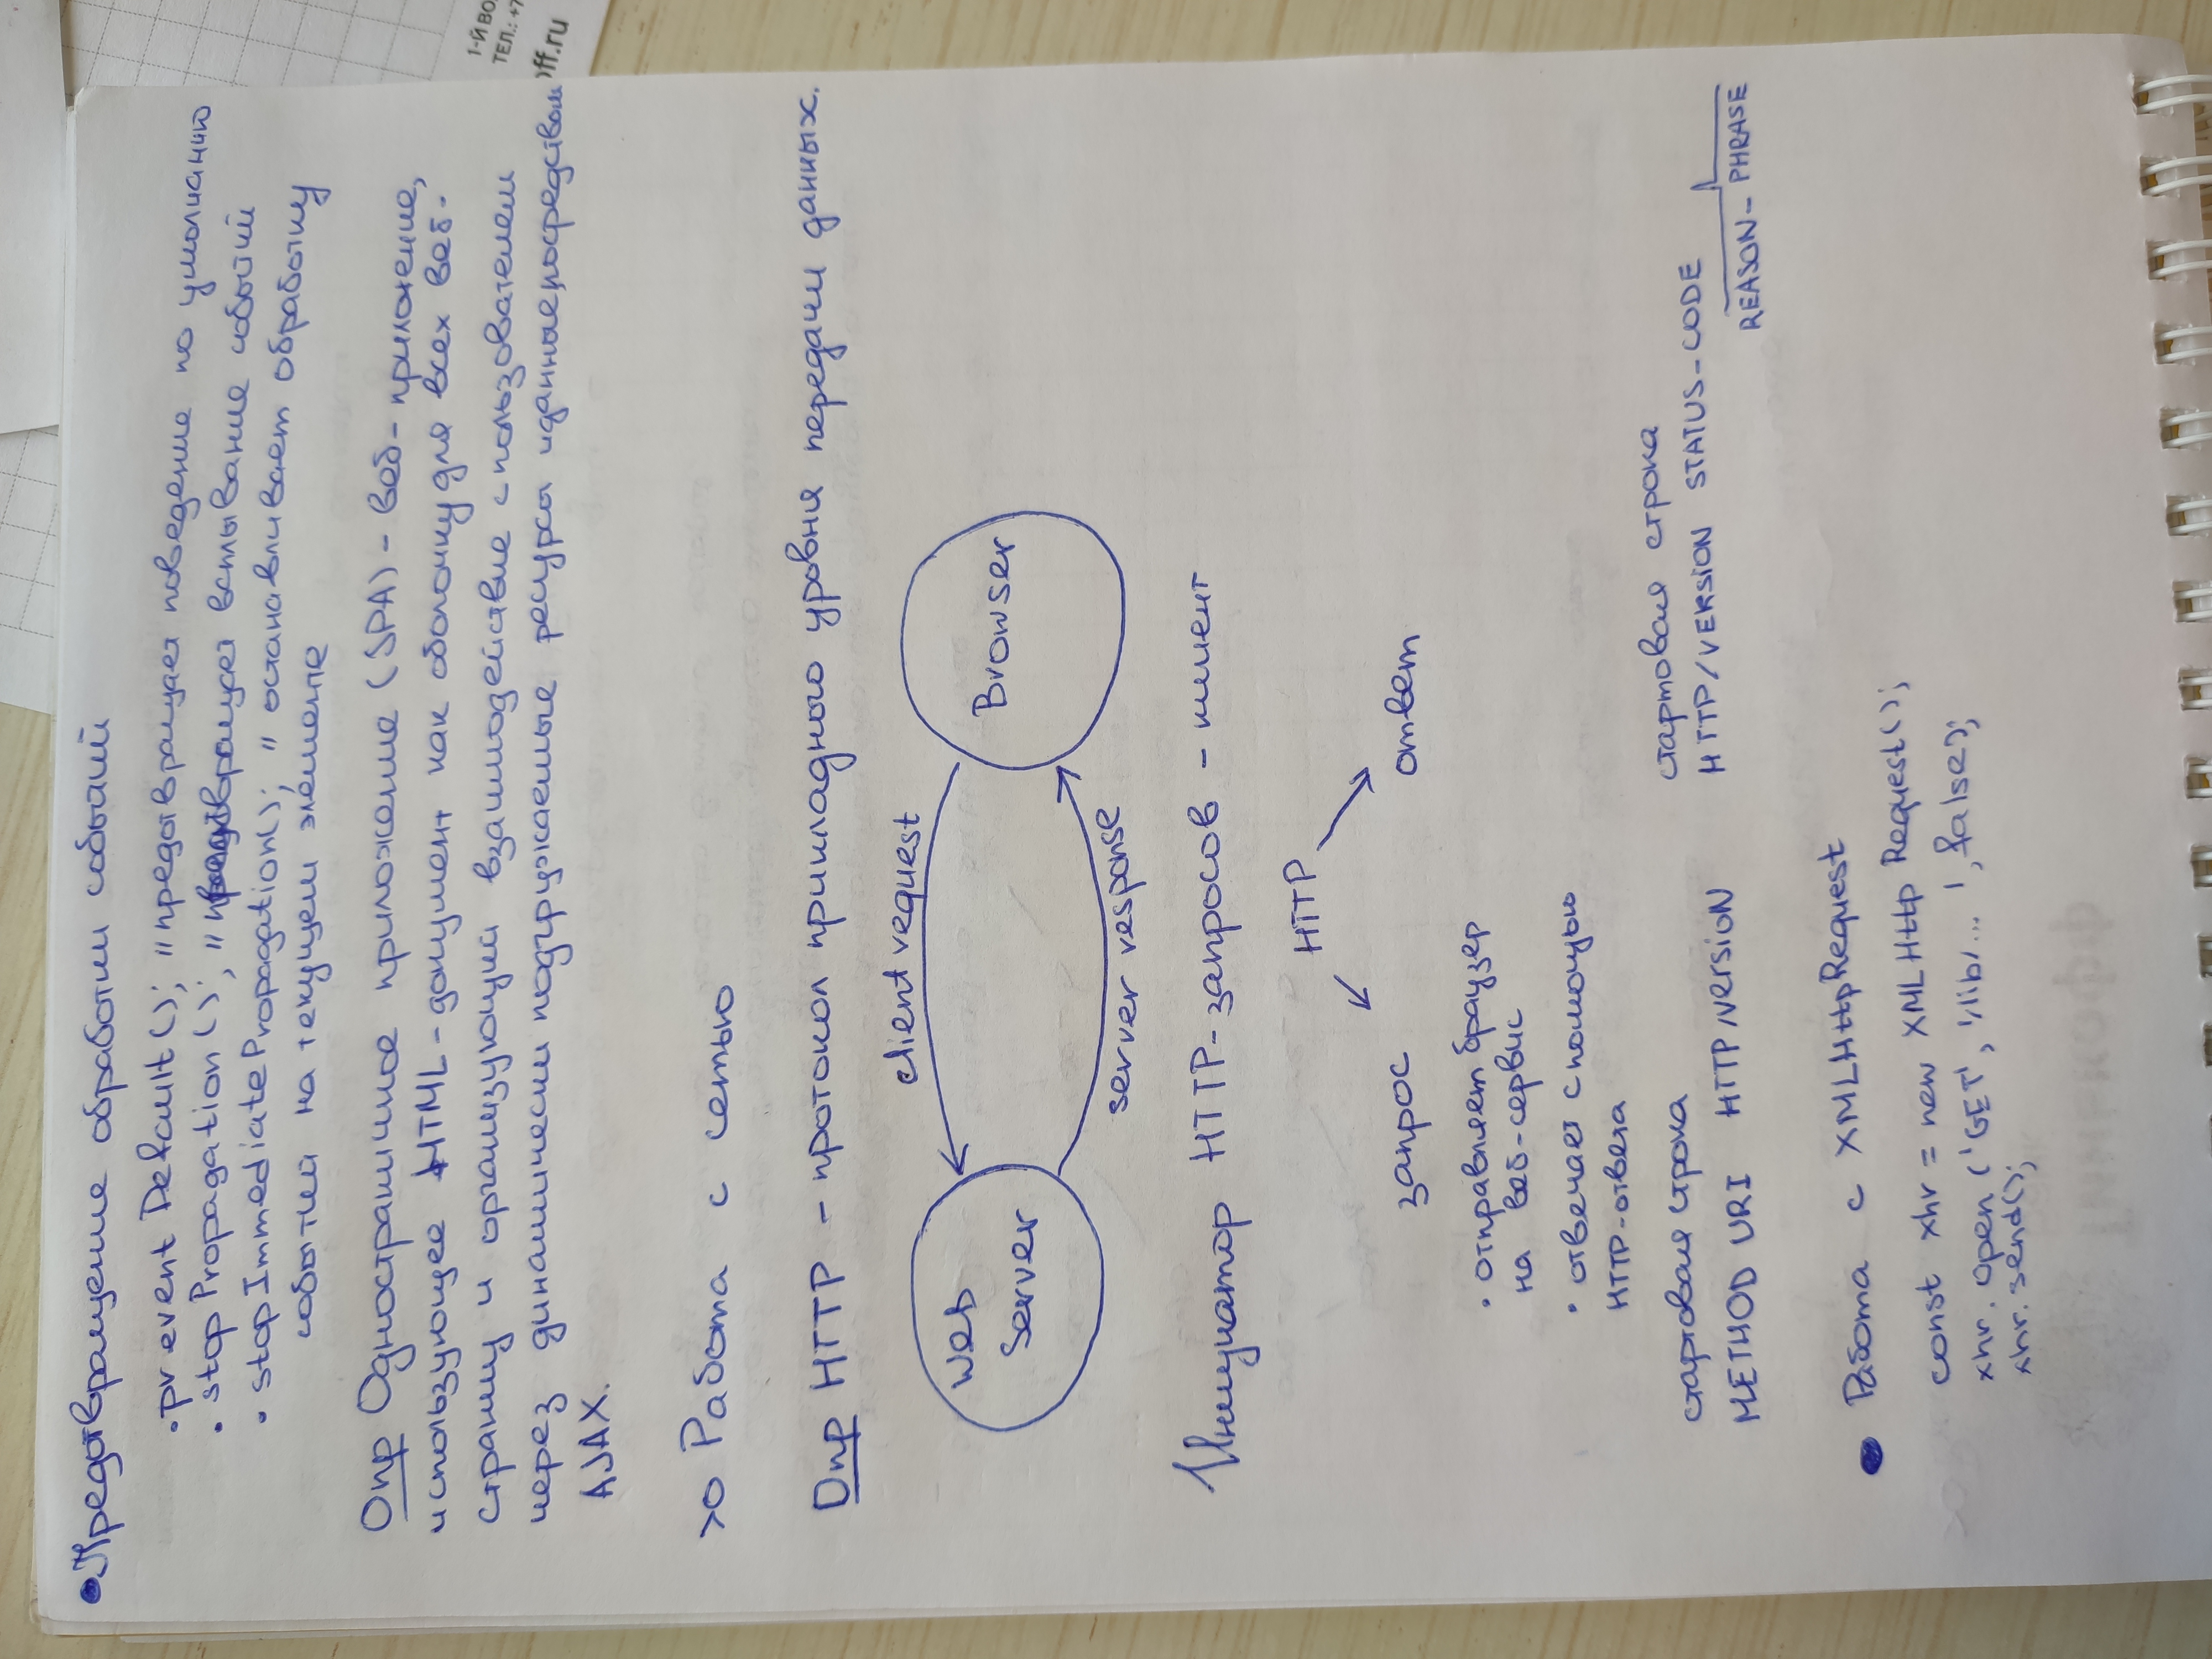 Предотвращение обработки событий
.preventDefault(); // предотвращает поведение по умолчанию
. stopPropagation(); // предотвращает всплывание событий
. stopImmediatePropagation(); // останавливает обработку
событий на текущем элементе
Опр Одностраничное приложение (SPA) - веб-приложение,
использующее HTML-документ как оболочку для всех веб-
страниц и организующий взаимодействие с пользователем
через динамически подгружаемые ресурсы и данные, посредством
AJAX.
1-Й ВО
ТЕЛ.: +7
off.ru
>o Работа с сетью
Опр HTTP - протокол прикладного уровня передачи данных.
client request
Web
Server
Browser
server response
Инициатор HTTP-запросов - клиент
HTTP
запрос
ответ
. отправляет браузер
на веб-сервис
. отвечает с помощью
HTTP-ответа
стартовая строка
METHOD URI HTTP/VERSION
стартовая строка
HTTP/VERSION STATUS-CODE
REASON-PHRASE
Работа с XMLHttpRequest
const xhr = new XMLHttpRequest();
xhr.open('GET', '/lib/... ', false);
xhr.send();